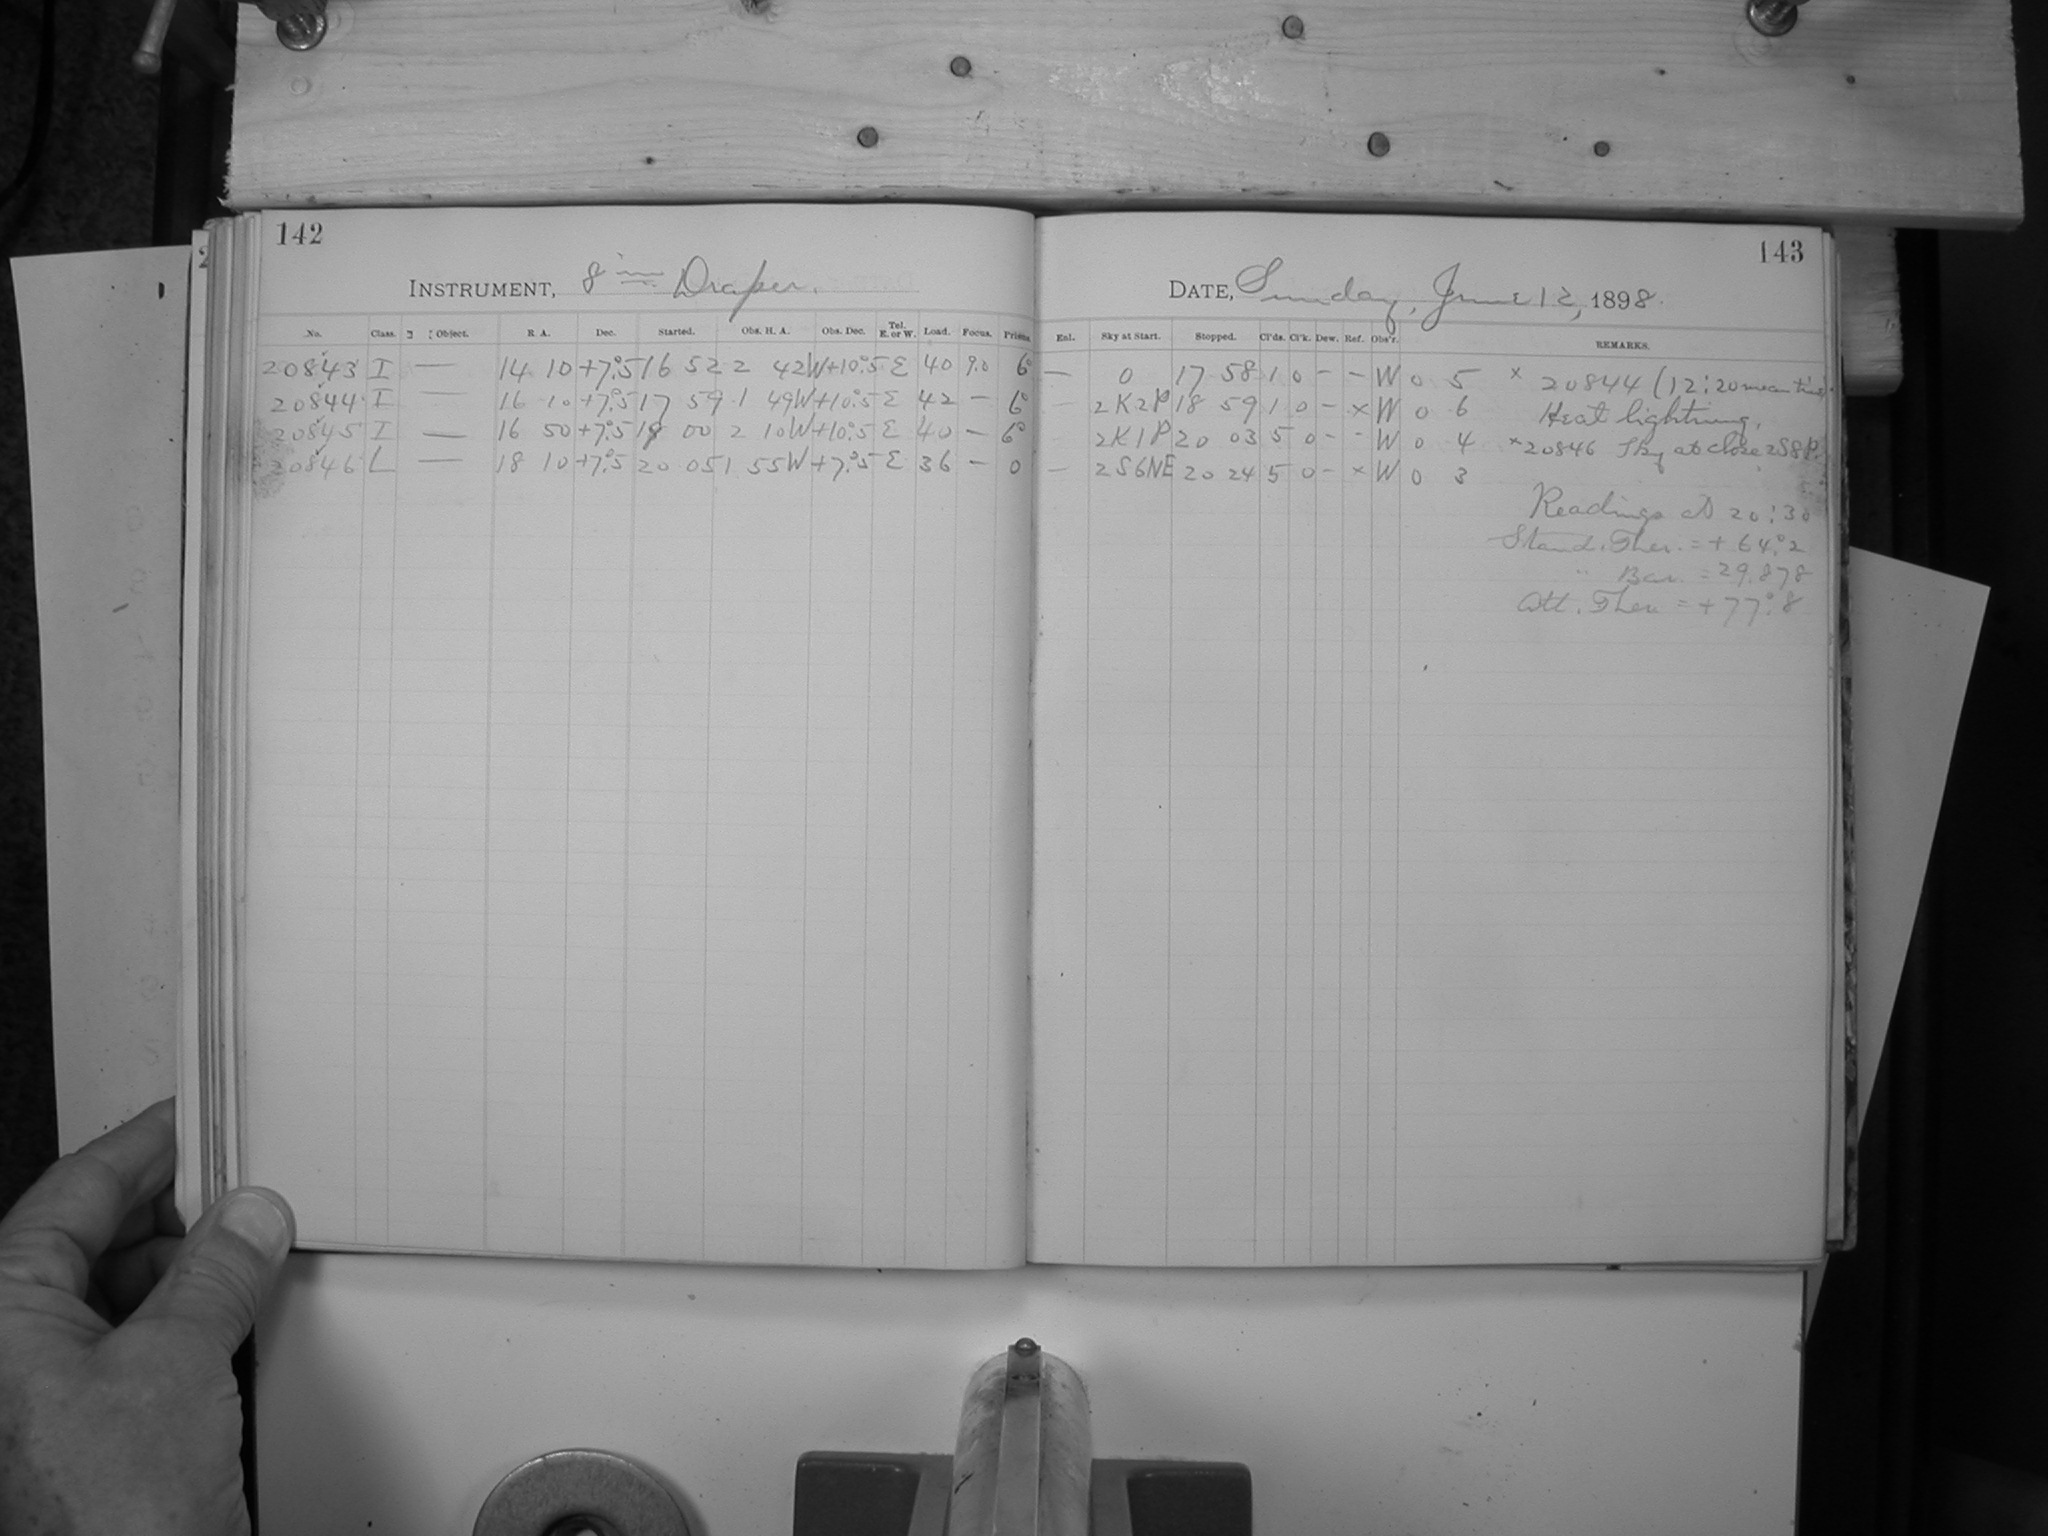 142
INSTRUMENT, 8 in Draper.
No. Class. Object. R. A. Dec. Started. Obs. H. A. Obs. Dec. Tel. E. or W. Load. Focus. Prisms
20843 I — 14 10 +7°.5 16 52 2 42W +10°.5 E 40 9.0 6°
20844 I — 16 10 +7°.5 17 59 1 49W +10°.5 E 42 — 6°
20845 I — 16 50 +7°.5 19 00 2 10W +10°.5 E 40 — 6°
20846 L — 18 10 +7°.5 20 05 1 55W +7°.5 E 36 — 0
143
DATE, Sunday, June 12, 1898.
Enl. Sky at Start. Stopped. Cl'ds. Cl'k. Dew. Ref. Obs'r. REMARKS.
— 0 17 58 1 0 - - W 0 5 x 20844 (12:20 mean time).
— 2K2P 18 59 1 0 - x W 0 6 Heat lightning.
2K1P 20 03 5 0 - - W 0 4 x 20846 Sky at close 2S8P.
— 2S6NE 20 24 5 0 - x W 0 3
Readings at 20:30
Stand. Ther. = + 64°.2
" Bar. = 29.878
Att. Ther = + 77°.8